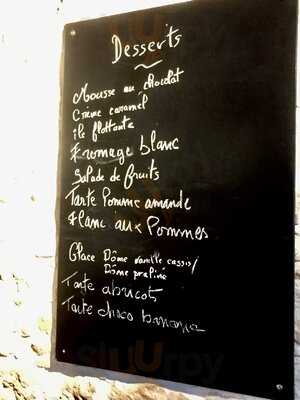 Desserts
Mousse au chocolat
Creme caramel
île flottante
Fromage blanc
Salade de fruits
Tarte Pomme amande
Flanc aux Pommes
Glace Dôme vanille cassis/
Dôme praliné
Tarte abricot
Tarte choco banane
sluurpy